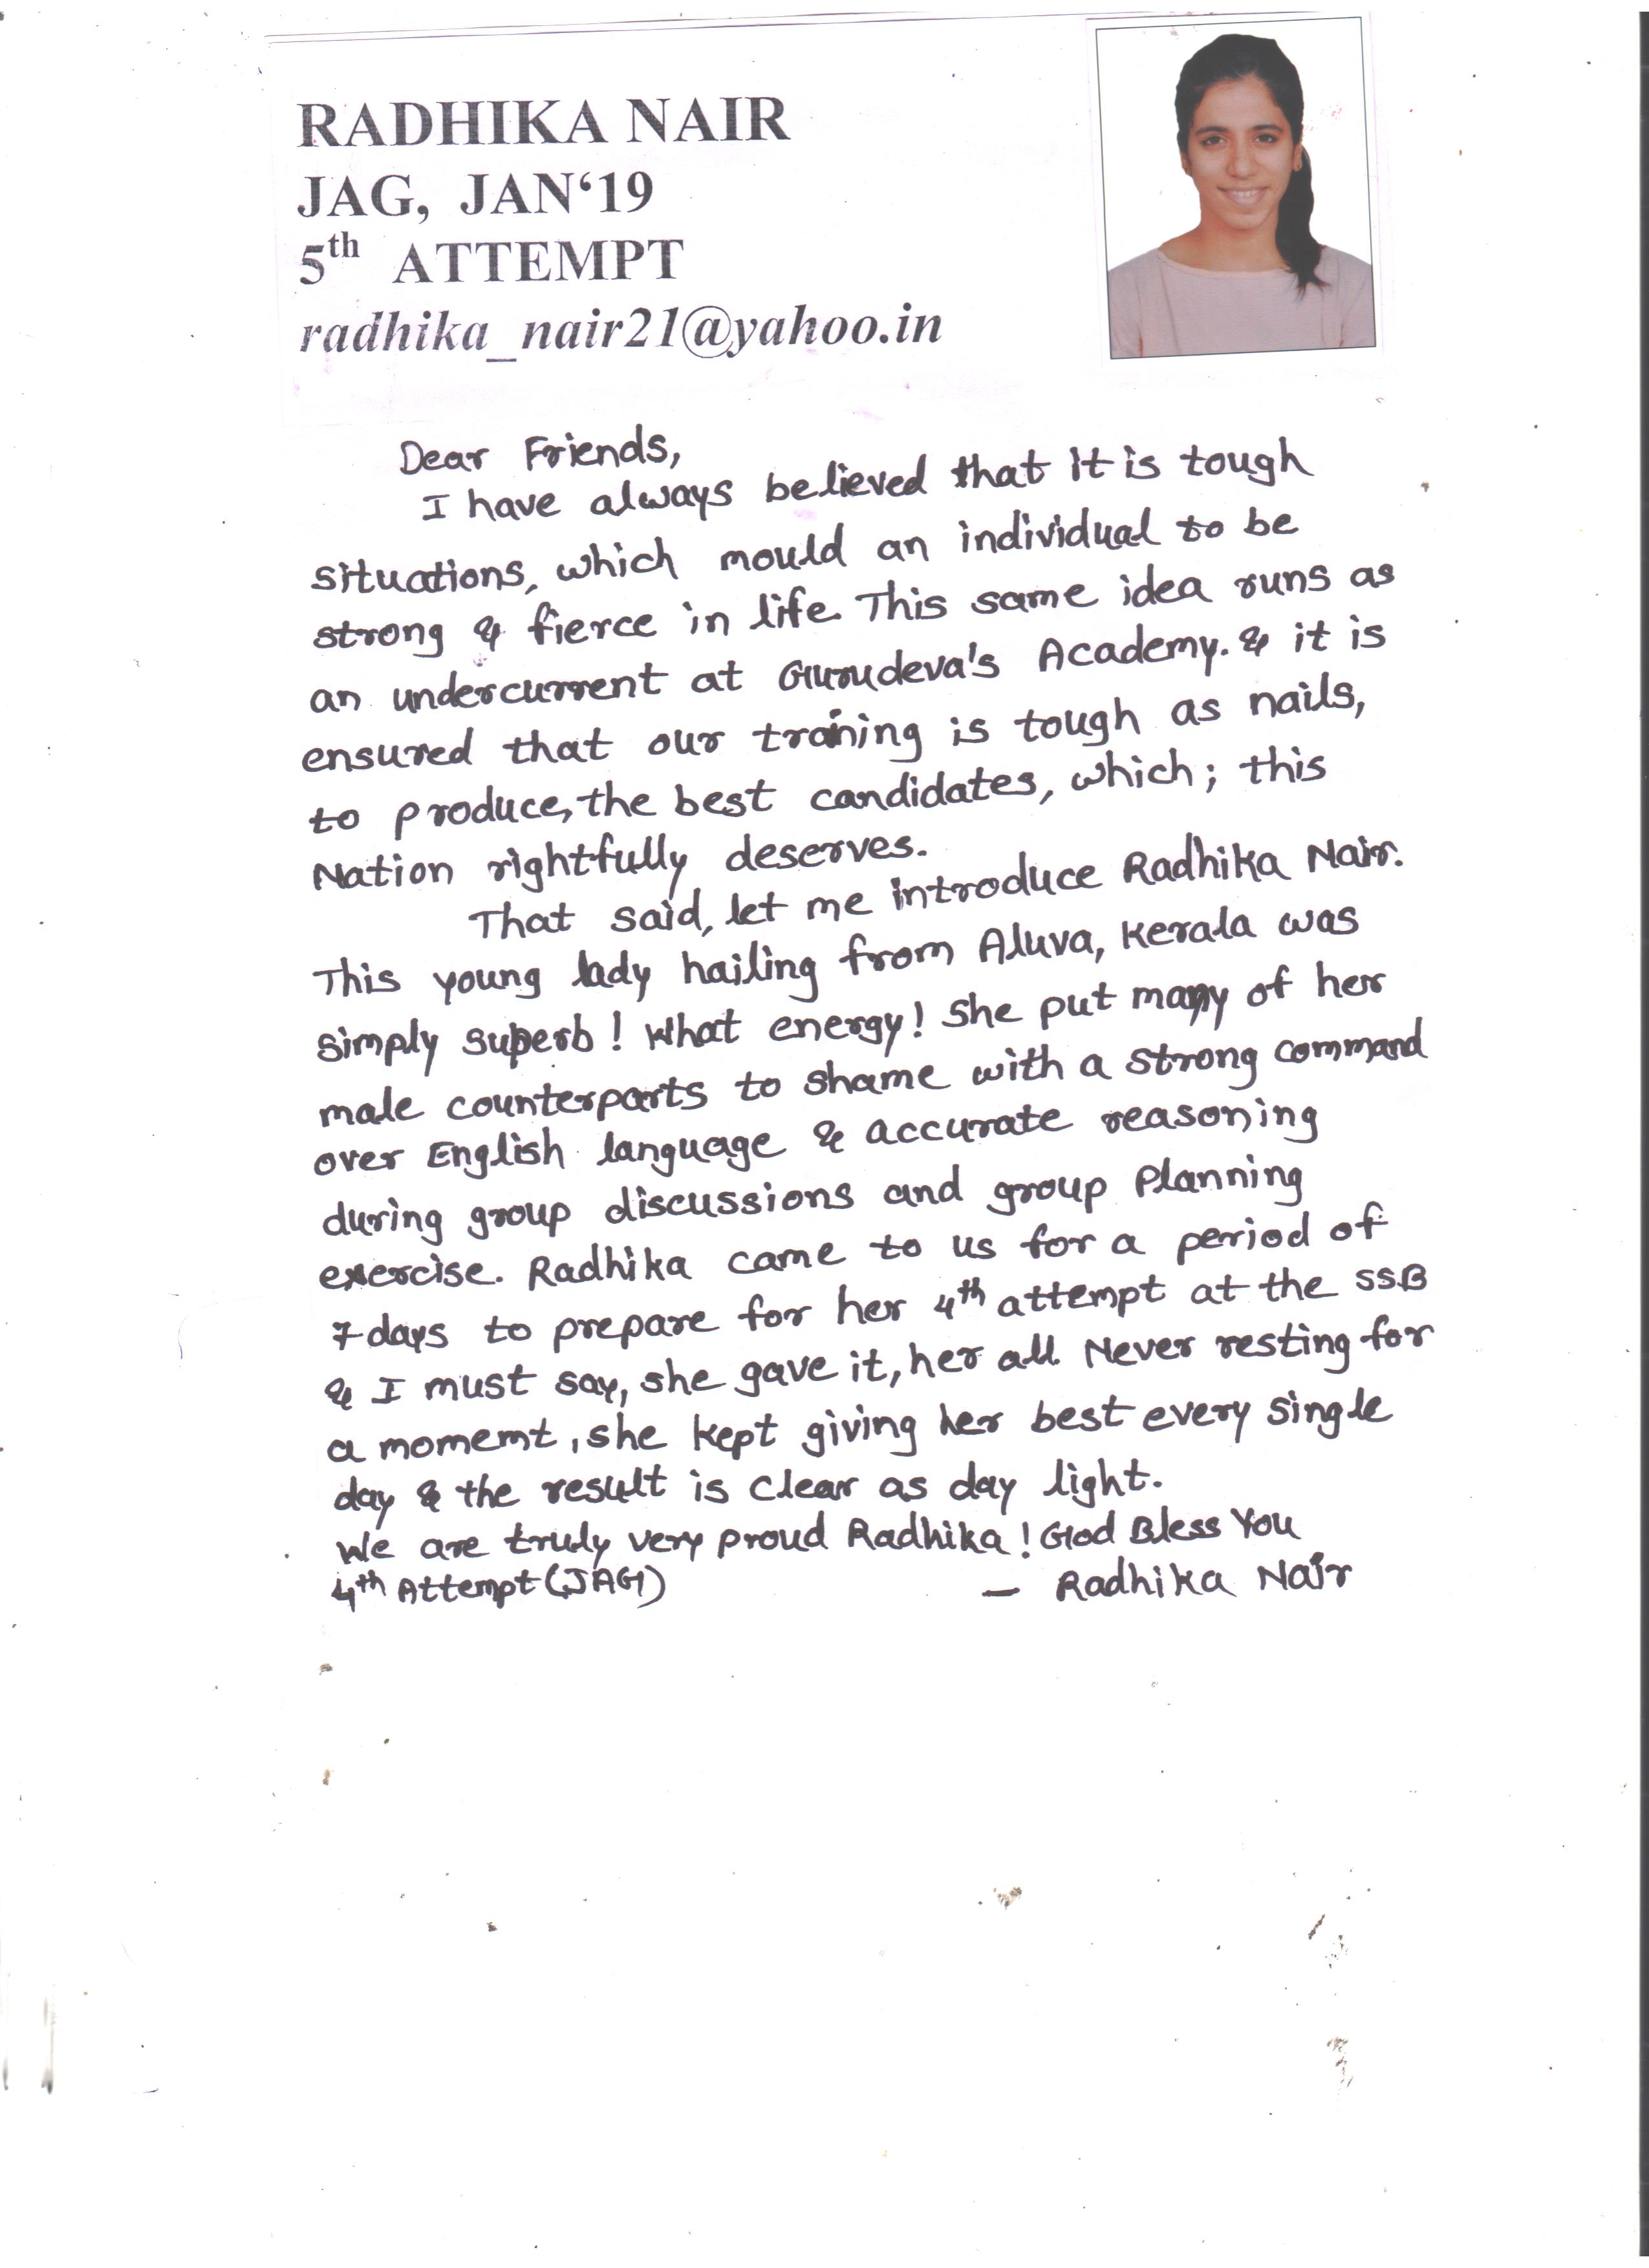 RADHIKA NAIR
JAG, JAN‘19
5th ATTEMPT
radhika_nair21@yahoo.in
Dear Friends,
I have always believed that it is tough
situations, which mould an individual to be
strong & fierce in life. This same idea runs as
an undercurrent at Gurudeva's Academy. & it is
ensured that our traning is tough as nails,
to produce, the best candidates, which; this
Nation rightfully deserves.
That said, let me introduce Radhika Nair.
This young lady hailing from Aluva, Kerala was
simply superb! What energy! She put many of her
male counterparts to shame with a strong command
over English language & accurate reasoning
during group discussions and group planning
exercise. Radhika came to us for a period of
7 days to prepare for her 4th attempt at the SSB
& I must say, she gave it, her all. Never resting for
a momemt, she kept giving her best every single
day & the result is clear as day light.
We are truly very proud Radhika! God Bless You
4th Attempt (JAG) — Radhika Nair